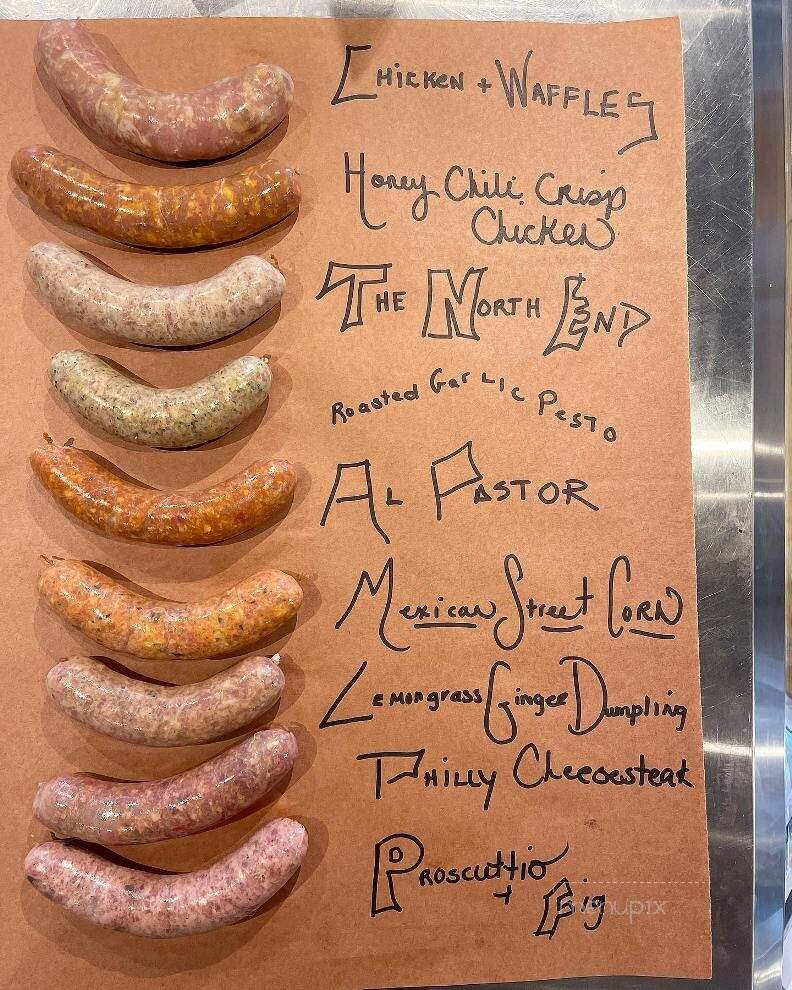 CHICKEN + WAFFLES
Honey Chili Crisp
Chicken
THE NORTH END
Roasted GarLic PesTo
AL PASTOR
Mexican Street CORN
LEMongrass Ginger Dumpling
PHILLY Cheesesteak
PROSCUTTIO
+ Fig
menupix